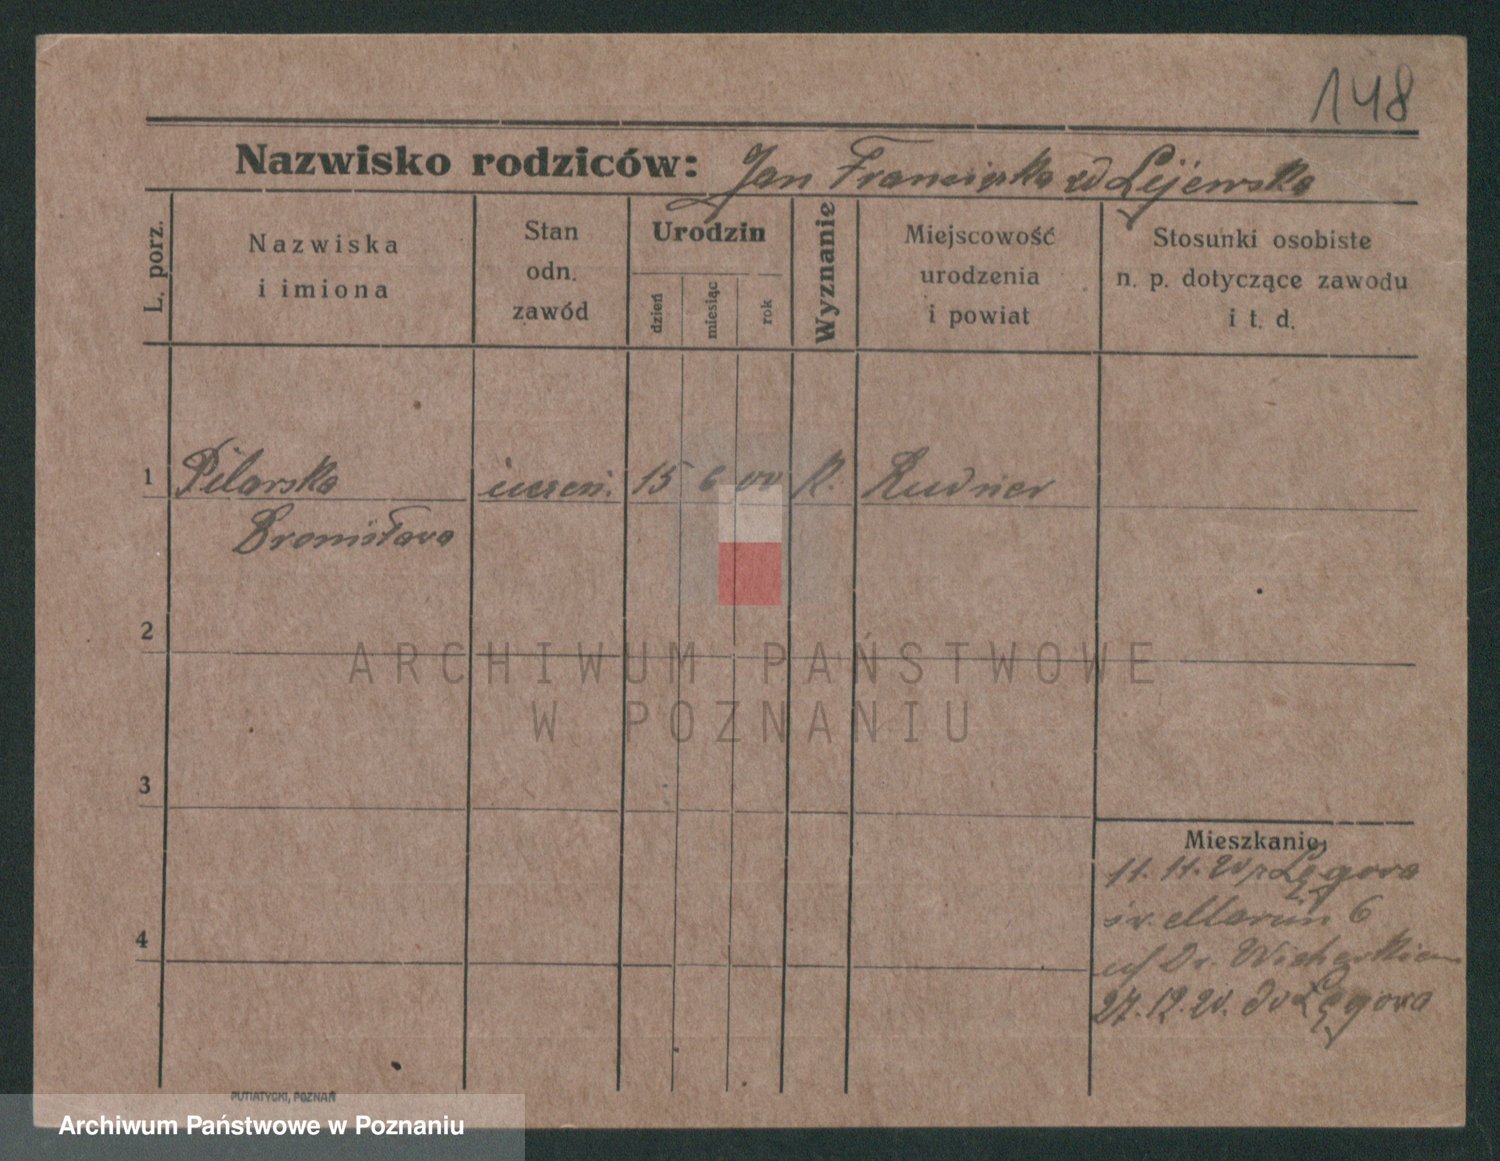 148
Nazwisko rodziców: Jan Franciszka zd Lijewska
L. porz.
Nazwiska
i imiona
Stan
odn.
zawód
Urodzin
dzień
miesiąc
rok
Wyznanie
Miejscowość
urodzenia
i powiat
Stosunki osobiste
n. p. dotyczące zawodu
i t. d.
1 Pilarska uczen. 15 6 00 K.
Bronisława
2
ARCHIWUM PAŃSTWOWE
W POZNANIU
3
Mieszkanie
11. 11. 20 Łęgova
św. Marcin 6
Dr.
4
27.12.20. do Łęgova
PUTIATYCKI, POZNAŃ
Archiwum Państwowe w Poznaniu